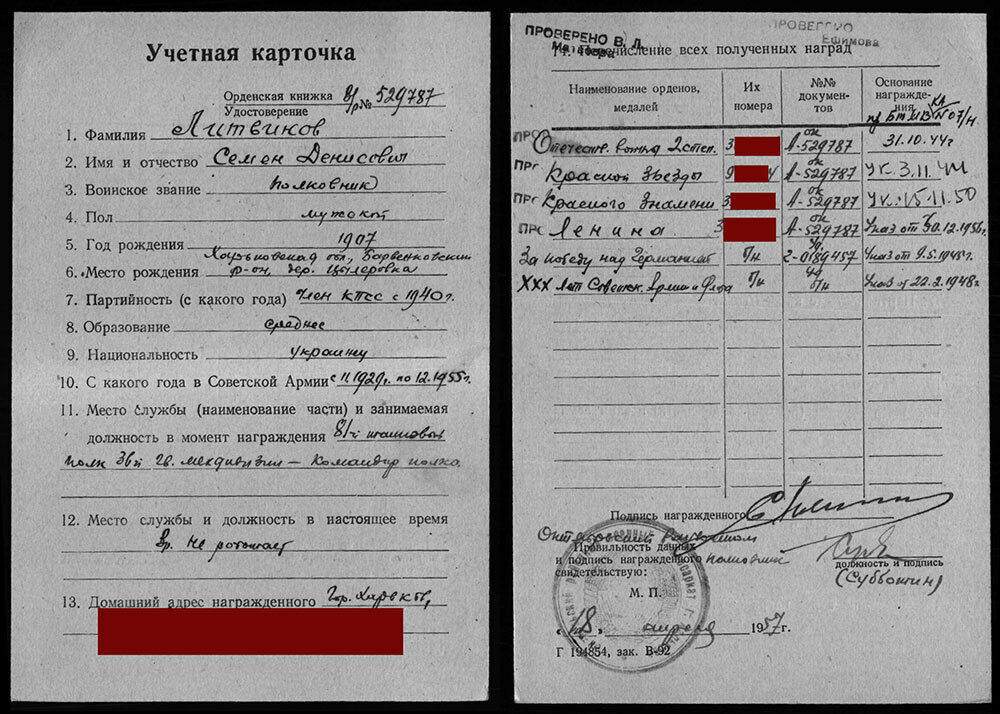 Учетная карточка
Орденская книжка в/р№ 529787
Удостоверение
1. Фамилия Литвинов
2. Имя и отчество Семен Денисович
3. Воинское звание полковник
4. Пол мужской
5. Год рождения 1907
Харьковская обл, Барвенковский
6. Место рождения р-он, дер.
7. Партийность (с какого года) член КПСС с 1940 г.
8. Образование среднее
9. Национальность украинец
10. С какого года в Советской Армии с 11.1929г. по 12.1955г.
11. Место службы (наименование части) и занимаемая
должность в момент награждения 81й танковый
полк 36й гв. мехдивизии – Командир полка.
12. Место службы и должность в настоящее время
Вр. не работает
13. Домашний адрес награжденного Гор. Харьков,
ПРОВЕРЕНО В. Л.
ПРОВЕРЕНО
Ефимова
14. Перечисление всех полученных наград
Наименование орденов, медалей
Их номера
№№ документов
Основание награждения
Отечествен. война 2 степ. А-529787 31.10.44г
Красной Звезды А-529787 Ук. 3.11.44
Красного Знамени А-529787 Ук. 15.11.50
Ленина А-529787 Указ от 30.12.1956г.
За победу над Германией б/н 2-0189457 Указ от 9.5.1945г.
XXX лет Советск. Армии и Флота б/н б/н Указ от 22.2.1948г.
Подпись награжденного
Октябрьский военком
Правильность данных
и подпись награжденного полковник
свидетельствую:
должность и подпись
(Субботин)
М. П.
„18„ апреля 1957г.
Г 194854, зак. В-92